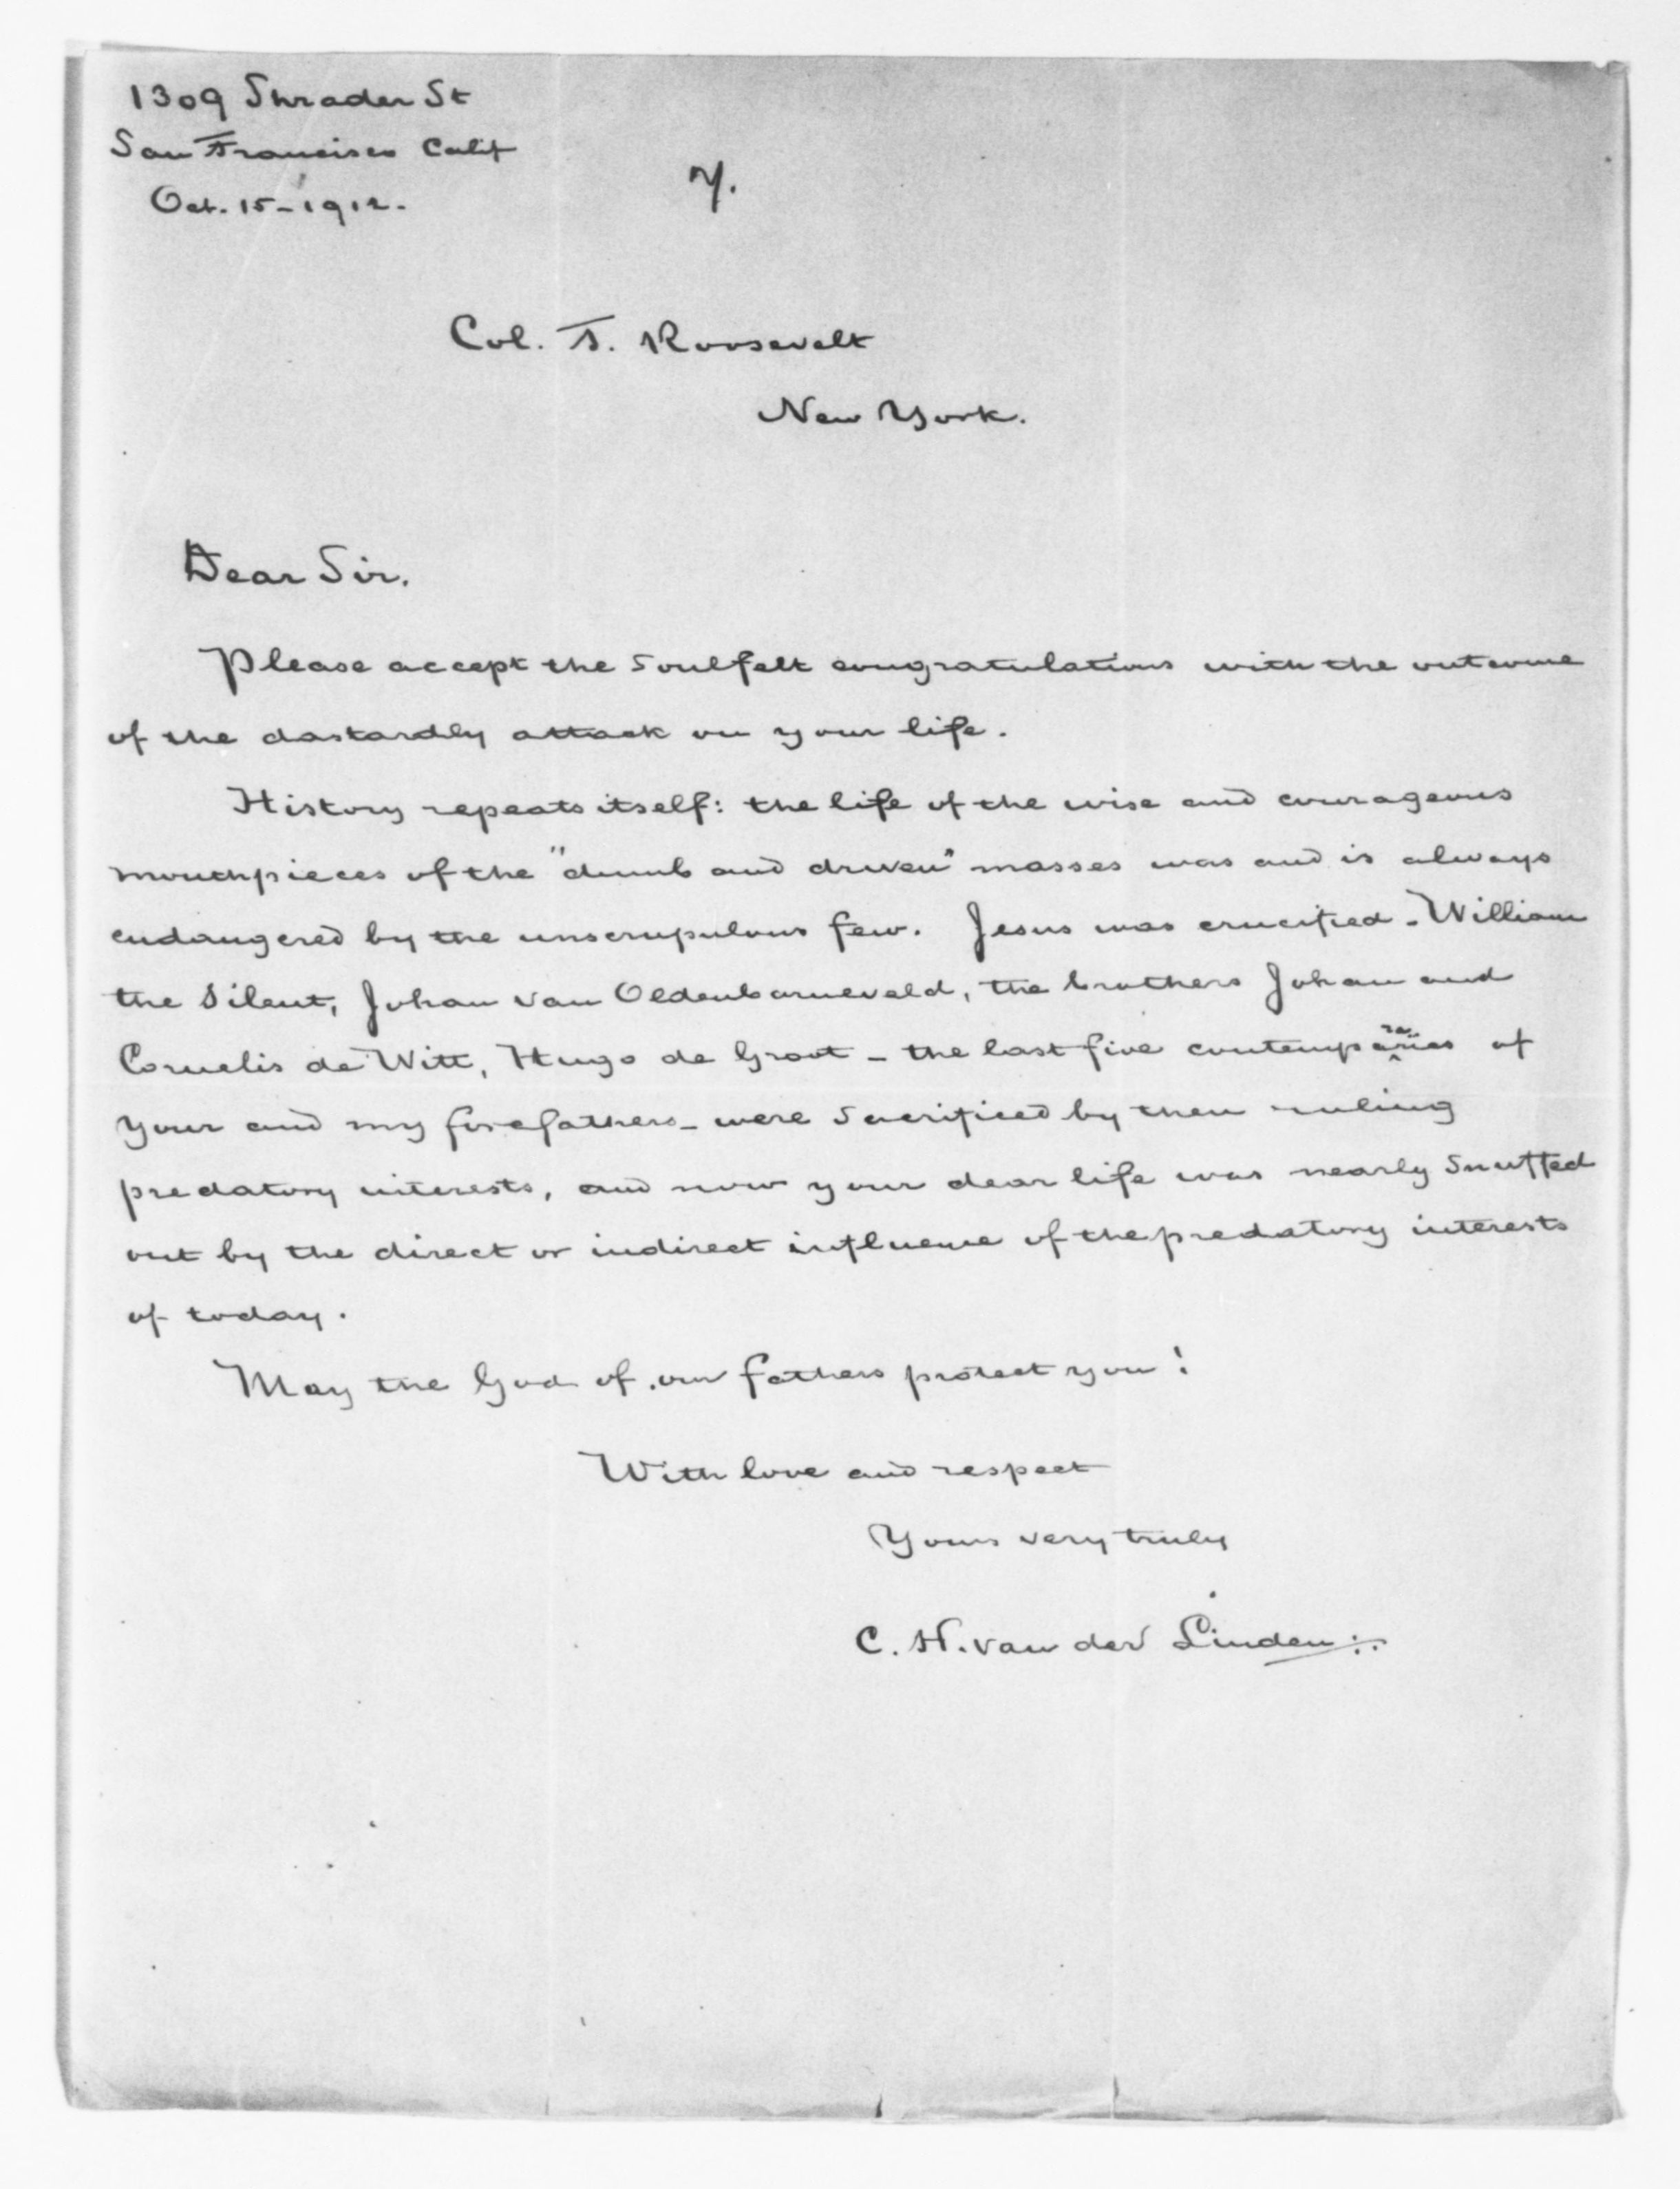 1309 Shrader St
San Francisco Calif
Oct. 15-1912.
Y.
Col. T. Roosevelt
New York.
Dear Sir.
Please accept the soulfelt congratulations with the outcome
of the dastardly attack on your life.
History repeats itself: the life of the wise and courageous
mouthpieces of the "dumb and driven" masses was and is always
endangered by the unscrupulous few. Jesus was crucified - William
the Silent, Johan van Oldenbarneveld, the brothers Johan and
Cornelis de Witt, Hugo de Groot - the last five contemporaries of
your and my forefathers - were sacrificed by then ruling
predatory interests, and now your dear life was nearly snuffed
out by the direct or indirect influence of the predatory interests
of today.
May the God of our fathers protect you!
With love and respect
Yours very truly
C. H. van der Linden